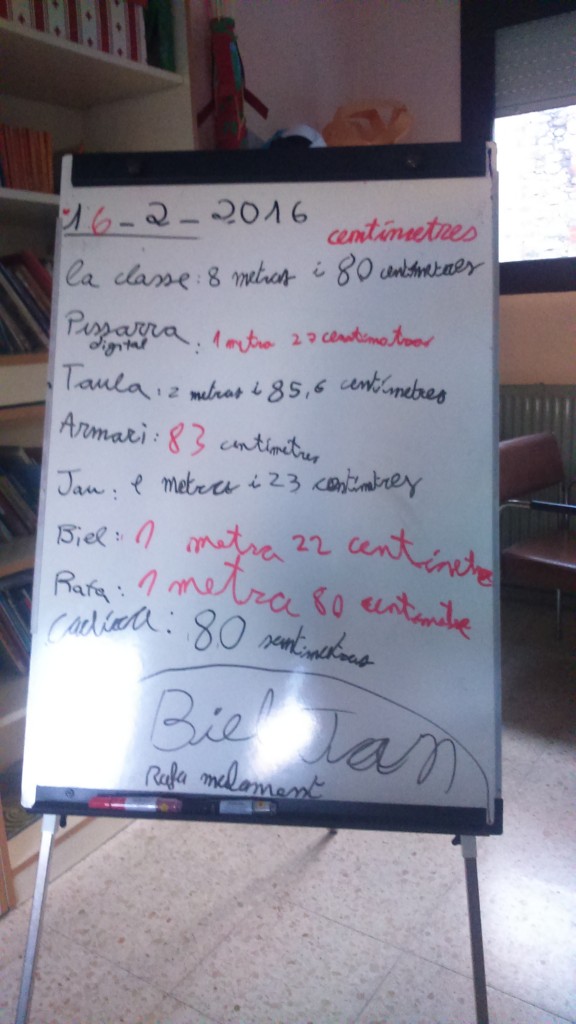 16-2-2016
centímetres
la classe: 8 metres i 80 centimetres
Pissarra
digital : 1 metro 27 centimetros
Taula: 2 metres i 85,6 centímetres
Armari: 83 centimetres
Jan: 1 metres i 23 centimtres
Biel: 1 metra 22 centímetre
Rafa: 1 metra 80 centimetre
cadira: 80 sentimetres
Biel Jan
Rafa